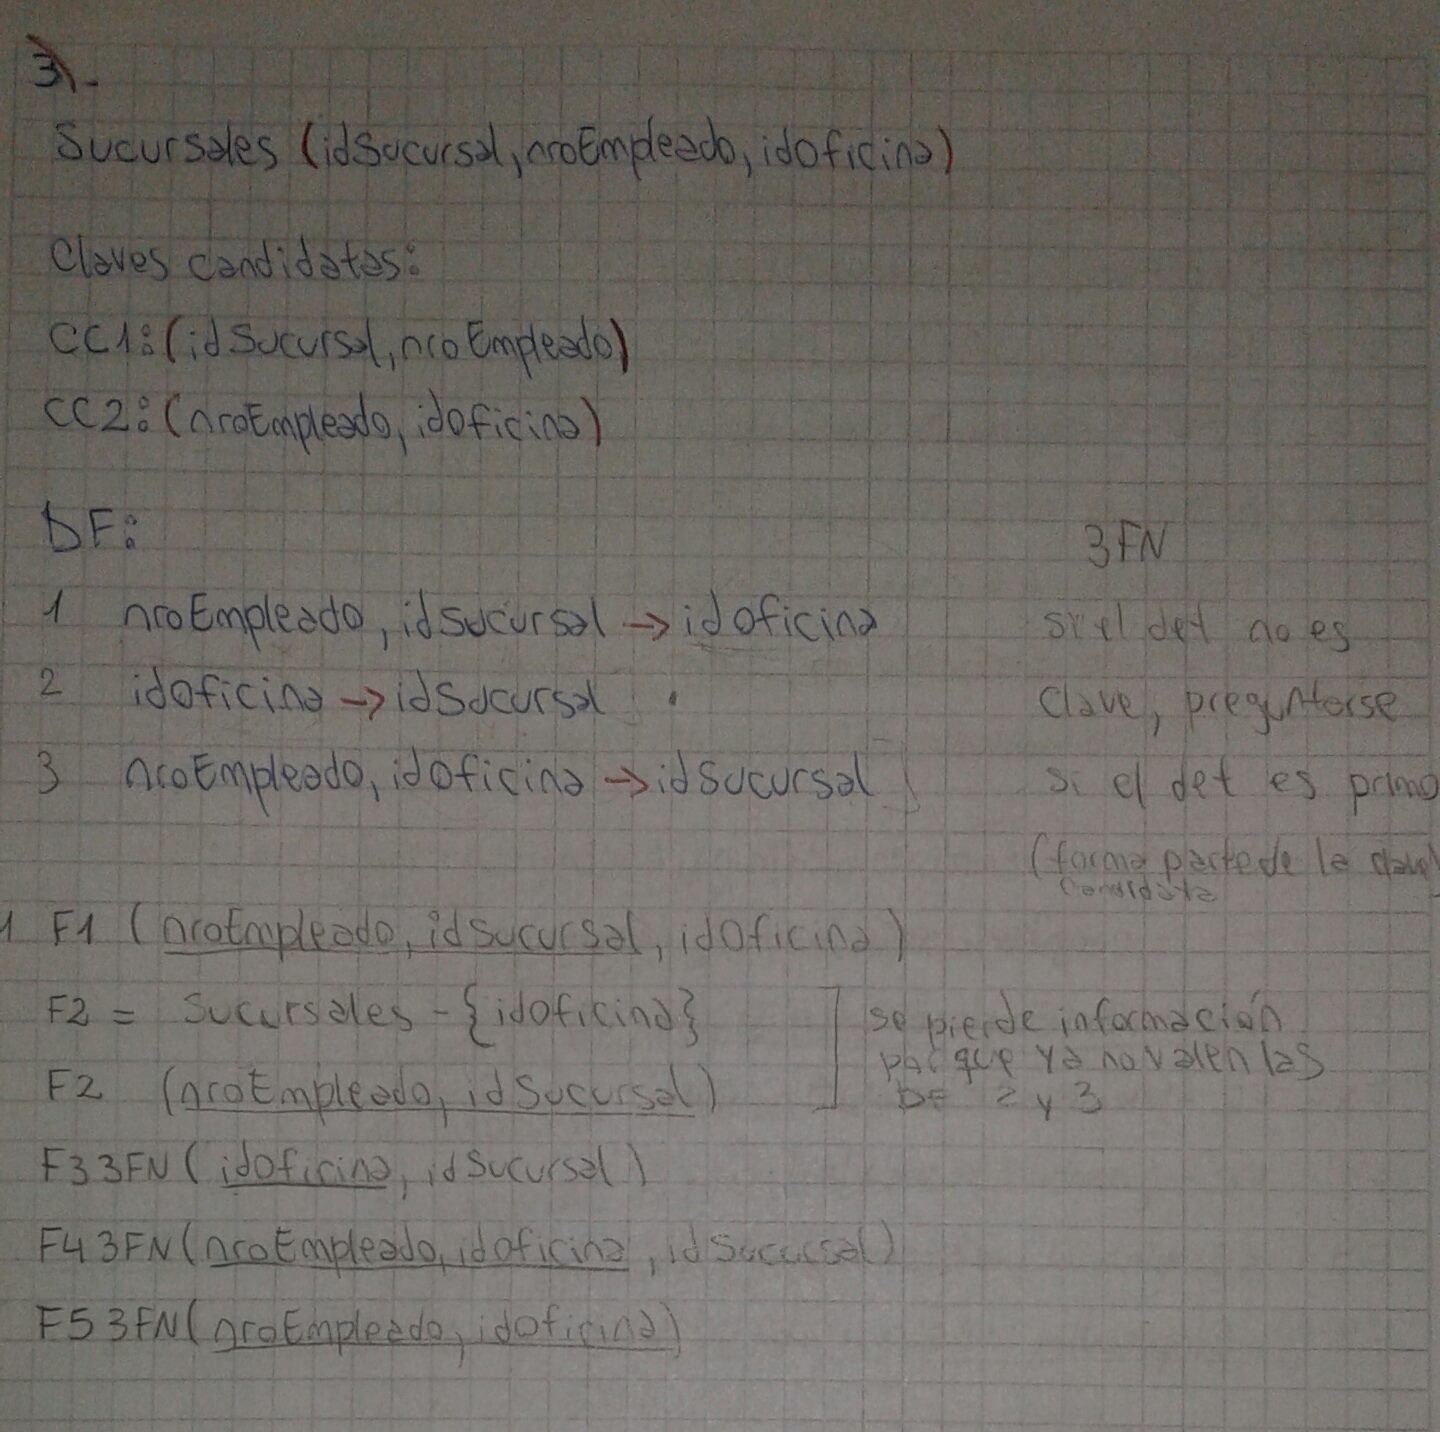 3).-
Sucursales (idSucursal, nroEmpleado, idOficina)
Claves candidatas:
CC1: (idSucursal, nroEmpleado)
CC2: (nroEmpleado, idOficina)
DF:
1 nroEmpleado, idSucursal → idOficina
2 idOficina → idSucursal
3 nroEmpleado, idOficina → idSucursal
3FN
si el det no es
clave, preguntarse
si el det es primo
(forma parte de la clave)
candidata
1 F1 (nroEmpleado, idSucursal, idOficina)
F2 = Sucursales - {idOficina}
F2 (nroEmpleado, idSucursal)
se pierde información
porque ya no valen las
DF 2 y 3
F3 3FN (idOficina, idSucursal)
F4 3FN (nroEmpleado, idOficina, idSucursal)
F5 3FN (nroEmpleado, idOficina)